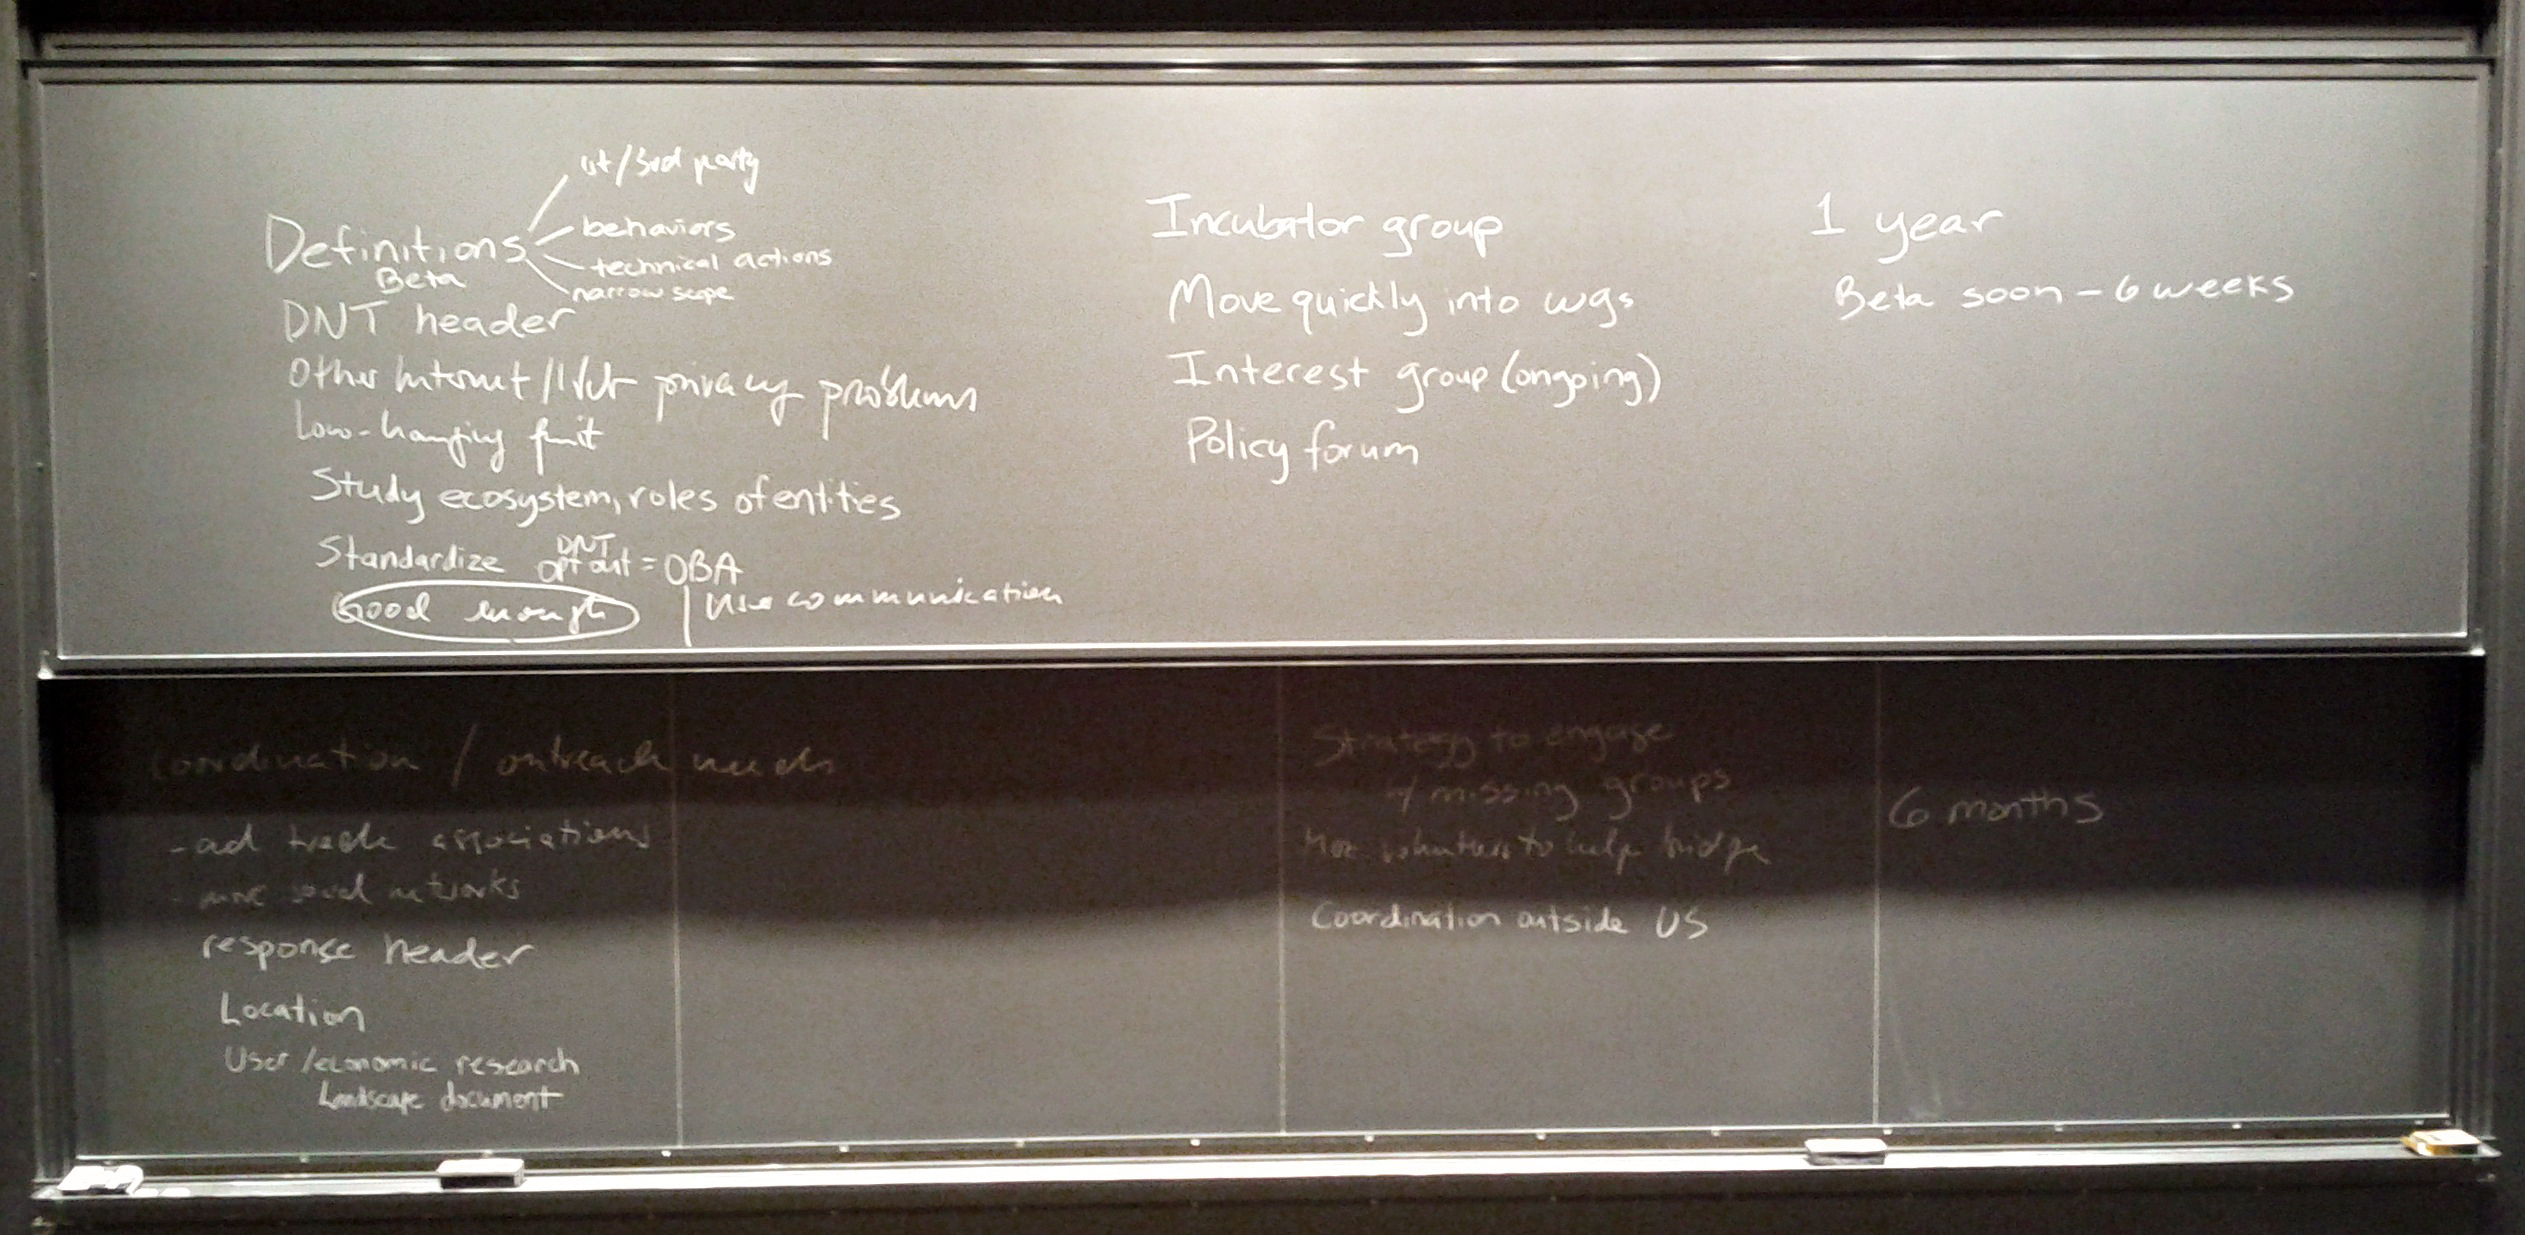 1st/3rd party
Definitions
behaviors
technical actions
narrow scope
Beta
DNT header
Other Internet/Web privacy problems
Low-hanging fruit
Study ecosystem, roles of entities
DNT
Standardize opt out = OBA
Good enough
User communication
Incubator group
Move quickly into wgs
Interest group (ongoing)
Policy forum
1 year
Beta soon - 6 weeks
Coordination / outreach needs
- ad trade associations
- more social networks
response header
Location
User/economic research
Landscape document
Strategy to engage
w/ missing groups
volunteers to help bridge
Coordination outside US
6 months